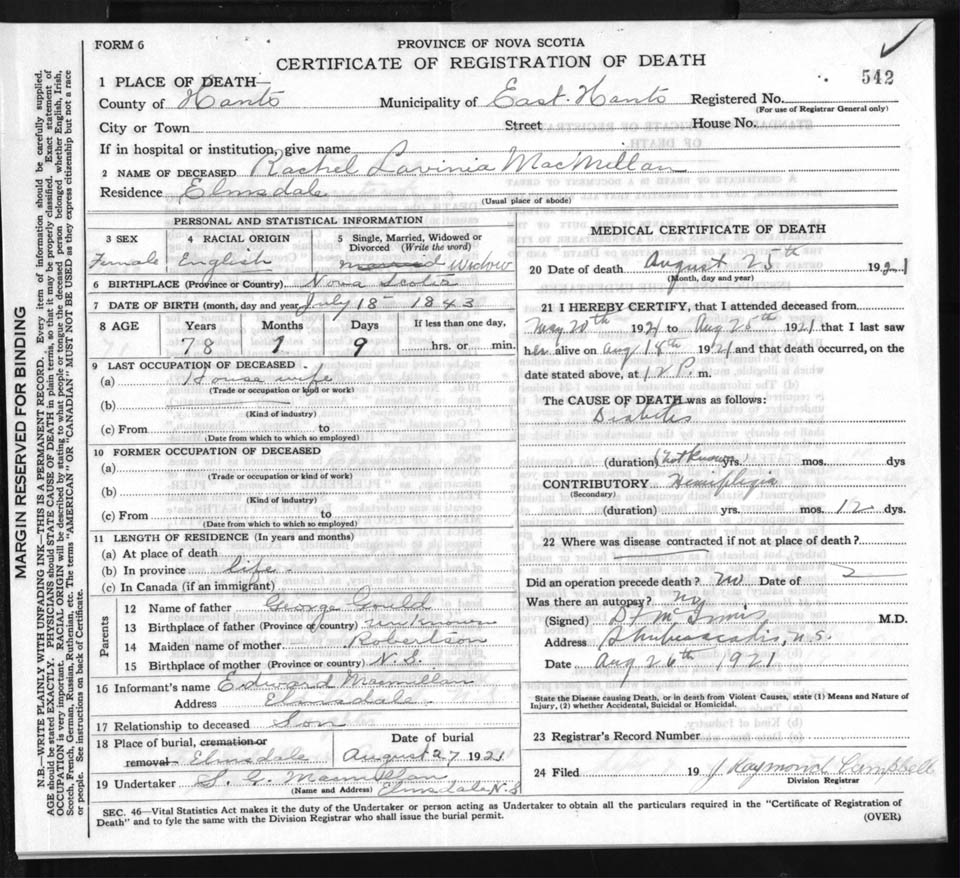 FORM 6
PROVINCE OF NOVA SCOTIA
CERTIFICATE OF REGISTRATION OF DEATH
542
1 PLACE OF DEATH
County of Hants Municipality of East Hants Registered No.
(For use of Registrar General only)
City or Town Street House No.
If in hospital or institution, give name
2 NAME OF DECEASED Rachel Lavinia MacMillan
Residence Elmsdale
(Usual place of abode)
PERSONAL AND STATISTICAL INFORMATION
3 SEX 4 RACIAL ORIGIN 5 Single, Married, Widowed or Divorced (Write the word)
Female English married Widow
6 BIRTHPLACE (Province or Country) Nova Scotia
7 DATE OF BIRTH (month, day and year) July 18 1843
8 AGE Years Months Days If less than one day,
78 1 9 hrs. or min.
9 LAST OCCUPATION OF DECEASED
(a) House wife
(Trade or occupation or kind or work)
(b)
(Kind of industry)
(c) From to
(Date from which to which so employed)
10 FORMER OCCUPATION OF DECEASED
(a)
(Trade or occupation or kind of work)
(b)
(Kind of industry)
(c) From to
(Date from which to which so employed)
11 LENGTH OF RESIDENCE (In years and months)
(a) At place of death
(b) In province life
(c) In Canada (if an immigrant)
Parents
12 Name of father George Gould
13 Birthplace of father (Province or country) unknown
14 Maiden name of mother Robertson
15 Birthplace of mother (Province or country) N.S.
16 Informant's name Edward Macmillan
Address Elmsdale
17 Relationship to deceased Son
18 Place of burial, cremation or removal Elmsdale Date of burial August 27 1921
19 Undertaker S. G. Macmillan
(Name and Address) Elmsdale N.S
MEDICAL CERTIFICATE OF DEATH
20 Date of death August 25th 1921
(Month, day and year)
21 I HEREBY CERTIFY, that I attended deceased from
May 20th 1921 to Aug 26th 1921 that I last saw
her alive on Aug 18th 1921 and that death occurred, on the
date stated above, at 12 P. m.
The CAUSE OF DEATH was as follows:
Diabetis
(duration) (not known) yrs. mos. dys
CONTRIBUTORY Hemiplegia
(Secondary)
(duration) yrs. mos. 12 dys.
22 Where was disease contracted if not at place of death?
Did an operation precede death? no Date of
Was there an autopsy? no
(Signed) M.D.
Address Shubenacadie, N.S.
Date Aug 26th 1921
State the Disease causing Death, or in death from Violent Causes, state (1) Means and Nature of
Injury, (2) whether Accidental, Suicidal or Homicidal.
23 Registrar's Record Number
24 Filed 19 J Raymond Campbell
Division Registrar
SEC. 46—Vital Statistics Act makes it the duty of the Undertaker or person acting as Undertaker to obtain all the particulars required in the "Certificate of Registration of
Death" and to fyle the same with the Division Registrar who shall issue the burial permit.
(OVER)
MARGIN RESERVED FOR BINDING
N.B.—WRITE PLAINLY WITH UNFADING INK—THIS IS A PERMANENT RECORD. Every item of information should be carefully supplied.
AGE should be stated EXACTLY. PHYSICIANS should STATE CAUSE OF DEATH in plain terms, so that it may be properly classified. Exact statement of
OCCUPATION is very important. RACIAL ORIGIN will be described by stating to what people or tongue the deceased person belonged, whether English, Irish,
Scotch, French, German, Russian, Ruthenian, etc. The terms "AMERICAN" OR "CANADIAN" MUST NOT BE USED as they express citizenship but not a race
or people. See instructions on back of Certificate.